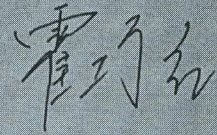 霍巧红